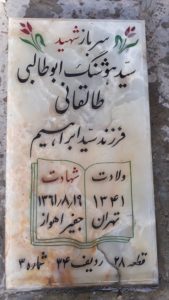 سرباز شهید
سید هوشنگ ابوطالبی
طالقانی
فرزند سید ابراهیم
ولادت شهادت
۱۳۴۱ ۱۳۶۱/۸/۱۹
تهران جفیر اهواز
قطعه ۲۸ ردیف ۳۴ شماره ۳